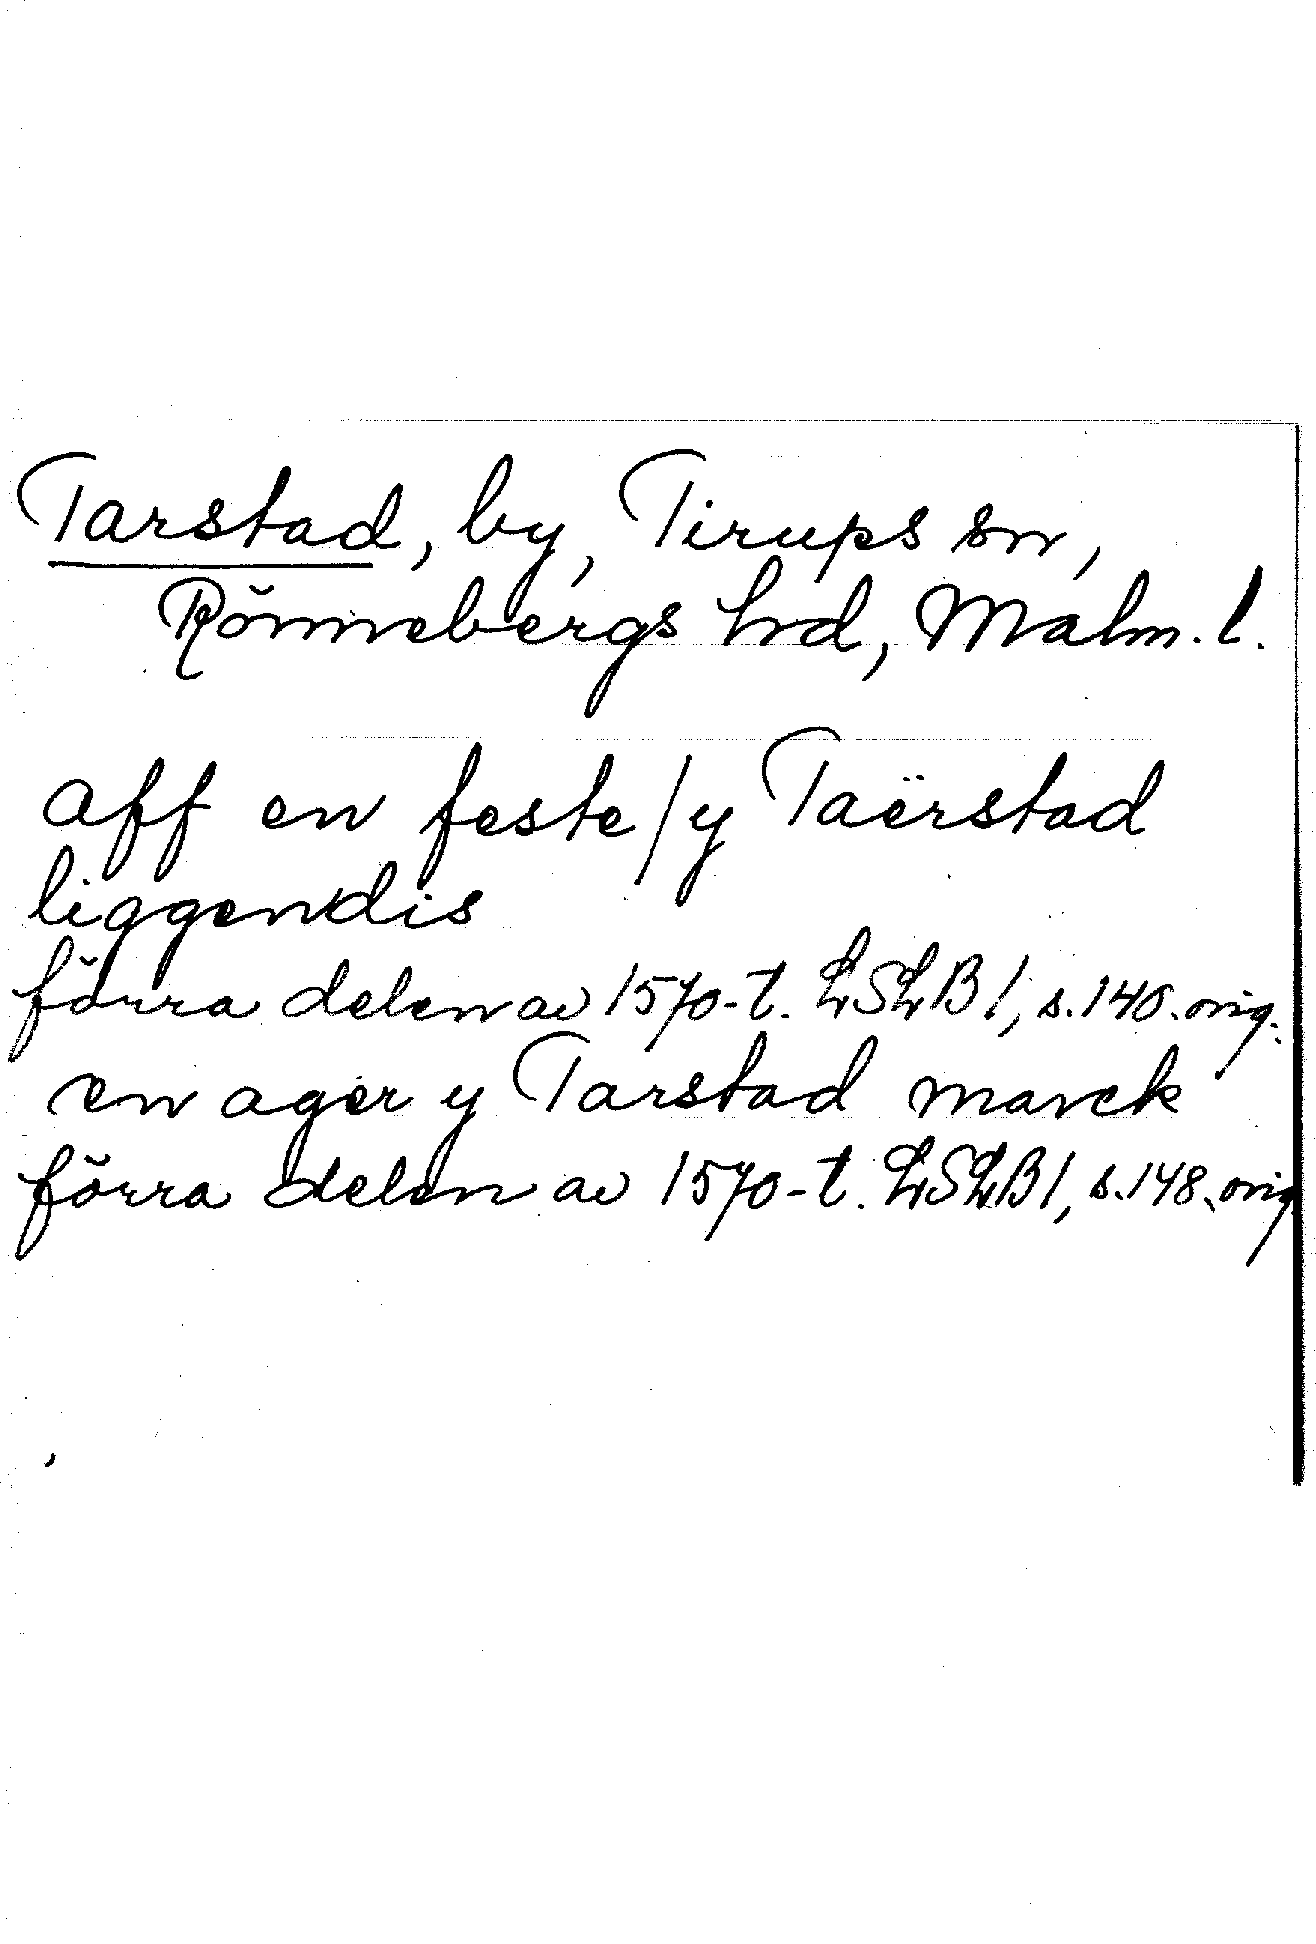 Tarstad, by, Tirups sn,
Rönnebergs hrd, Malm. l.
aff en feste/y Taërstad
liggendis
förra delen av 1570-t. LSLB I, s. 140. orig.
en ager y Tarstad marck
förra delen av 1570-t. LSLB I, s. 148. orig.